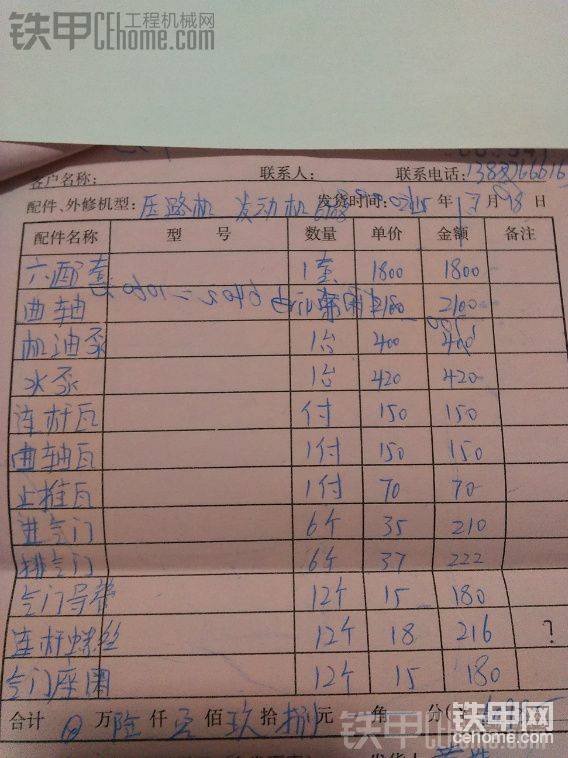 铁甲 工程机械网
CEhome.com
客户名称: 联系人: 联系电话:
配件、外修机型: 压路机 发动机 发货时间: 年 月 日
配件名称 型 号 数量 单价 金额 备注
六配套 1套 1800 1800
曲轴 2100
机油泵 1台 400 400
水泵 1台 420 420
连杆瓦 付 150 150
曲轴瓦 1付 150 150
止推瓦 1付 70 70
进气门 6个 35 210
排气门 6个 37 222
气门导管 12个 15 180
连杆螺丝 12个 18 216 ?
气门座圈 12个 15 180
合计 万 陆 仟 壹 佰 玖 拾 捌 元 角 分
铁甲网
CEhome.com
发货人